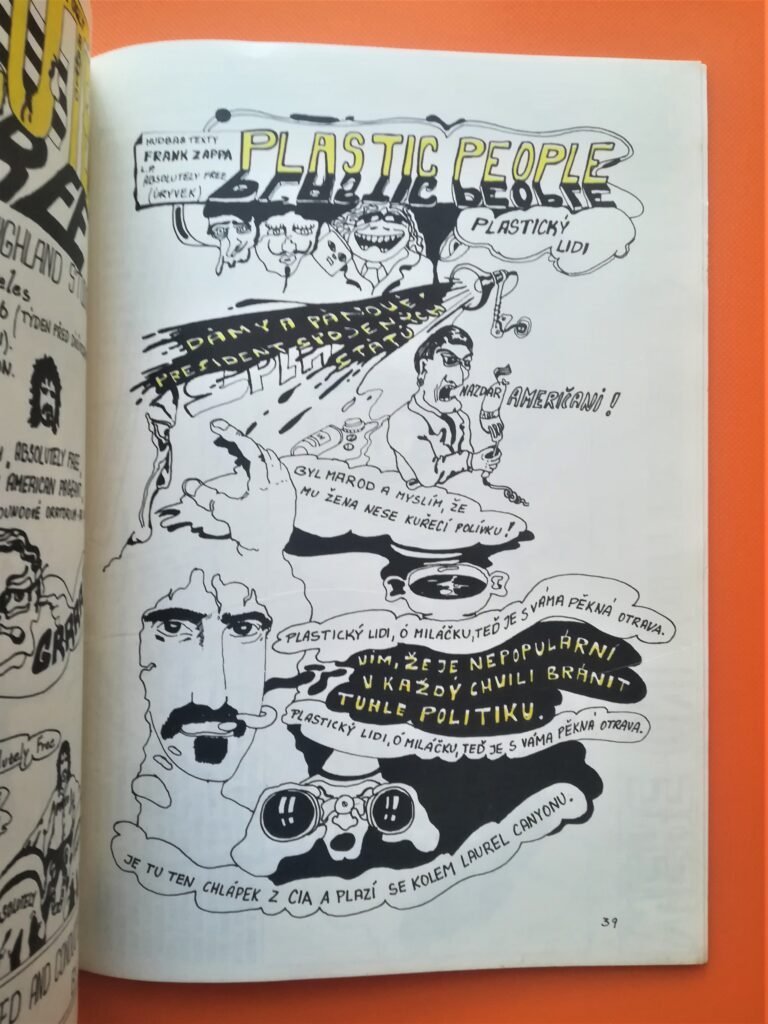 HUDBA & TEXTY
FRANK ZAPPA
L.P.
ABSOLUTELY FREE
(ÚRYVEK)
PLASTIC PEOPLE
PLASTICKÝ
LIDI
DÁMY A PÁNOVÉ,
PRESIDENT SPOJENÝCH
STÁTŮ
NAZDAR
AMERIČANI!
BYL MAROD A MYSLÍM, ŽE
MU ŽENA NESE KUŘECÍ POLÍVKU!
PLASTICKÝ LIDI, Ó MILÁČKU, TEĎ JE S VÁMA PĚKNÁ OTRAVA.
VÍM, ŽE JE NEPOPULÁRNÍ
V KAŽDÝ CHVILI BRÁNIT
TUHLE POLITIKU.
PLASTICKÝ LIDI, Ó MILÁČKU, TEĎ JE S VÁMA PĚKNÁ OTRAVA.
JE TU TEN CHLÁPEK Z CIA A PLAZÍ SE KOLEM LAUREL CANYONU.
39
(TÝDEN PŘED
ABSOLUTELY FREE,
AMERICAN PAGEANT